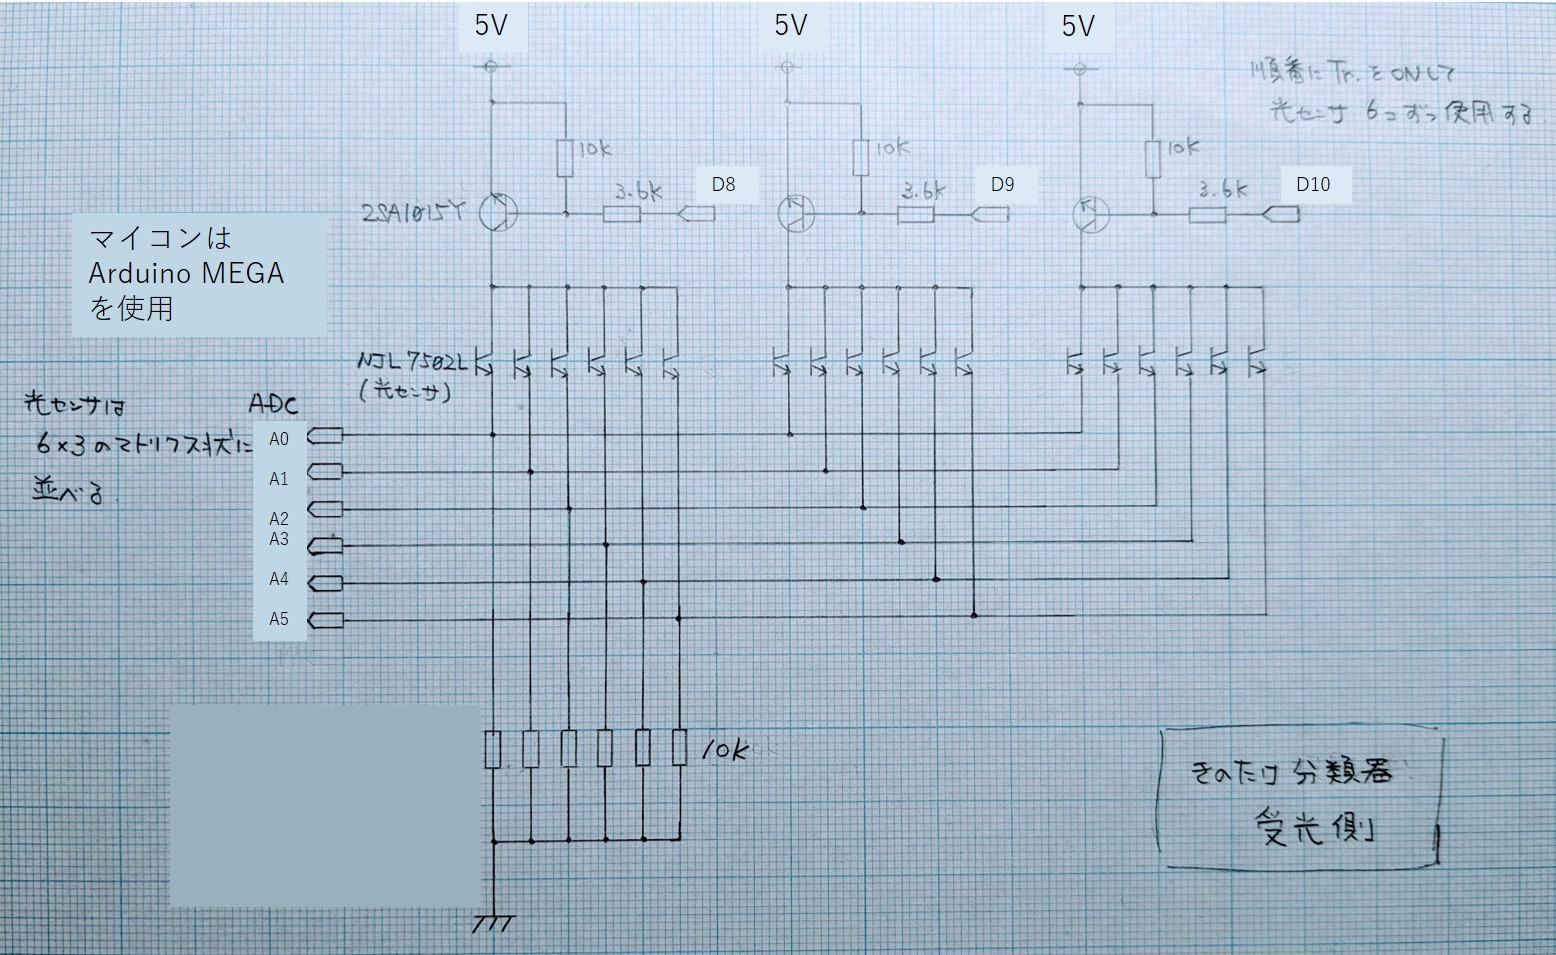 5V
5V
5V
順番にTr.をONして
光センサ 6つずつ使用する
10k
10k
10k
3.6k
D8
3.6k
D9
3.6k
D10
2SA1015Y
マイコンは
Arduino MEGA
を使用
NJL7502L
(光センサ)
光センサは
6×3のマトリクス状に
並べる
ADC
A0
A1
A2
A3
A4
A5
10k
きのたけ分類器
受光側